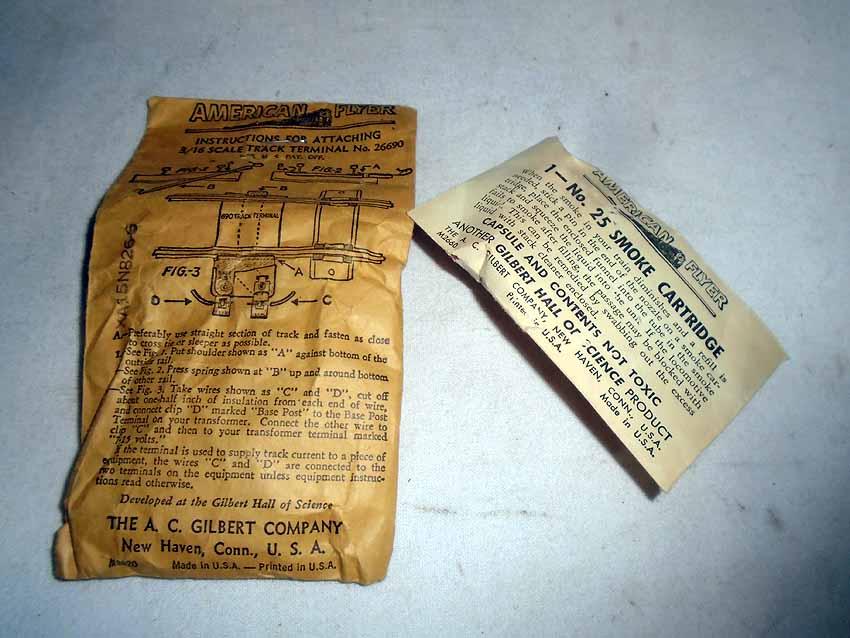 AMERICAN FLYER
INSTRUCTIONS FOR ATTACHING
3/16 SCALE TRACK TERMINAL No. 26690
PAT. OFF.
FIG-2
A
B
690 TRACK TERMINAL
FIG.-3
A
D
C
XA15N826-S
A.—Preferably use straight section of track and fasten as close
to cross tie or sleeper as possible.
1.—See Fig. 1. Put shoulder shown as "A" against bottom of the
outside rail.
—See Fig. 2. Press spring shown at "B" up and around bottom
of other rail.
—See Fig. 3. Take wires shown as "C" and "D", cut off
about one-half inch of insulation from each end of wire,
and connect clip "D" marked "Base Post" to the Base Post
Terminal on your transformer. Connect the other wire to
clip "C" and then to your transformer terminal marked
"7-15 volts."
If the terminal is used to supply track current to a piece of
equipment, the wires "C" and "D" are connected to the
two terminals on the equipment unless equipment instruc-
tions read otherwise.
Developed at the Gilbert Hall of Science
THE A. C. GILBERT COMPANY
New Haven, Conn., U. S. A.
Made in U.S.A. — Printed in U.S.A.
AMERICAN FLYER
1 — No. 25 SMOKE CARTRIDGE
When the smoke in your train diminishes and a refill is
needed, pick a pin hole in the nozzle on a smoke car-
tridge, place the enclosed funnel into the locomotive
stack and squeeze the liquid into the tube. If the smoke
fails to smoke after filling, the passage may be blocked with
liquid. This can be remedied by swabbing out the excess
liquid with stack cleaner enclosed.
CAPSULE AND CONTENTS NOT TOXIC
ANOTHER GILBERT HALL OF SCIENCE PRODUCT
THE A. C. GILBERT COMPANY, NEW HAVEN, CONN., U.S.A.
M2660
Printed in U.S.A.
Made in U.S.A.